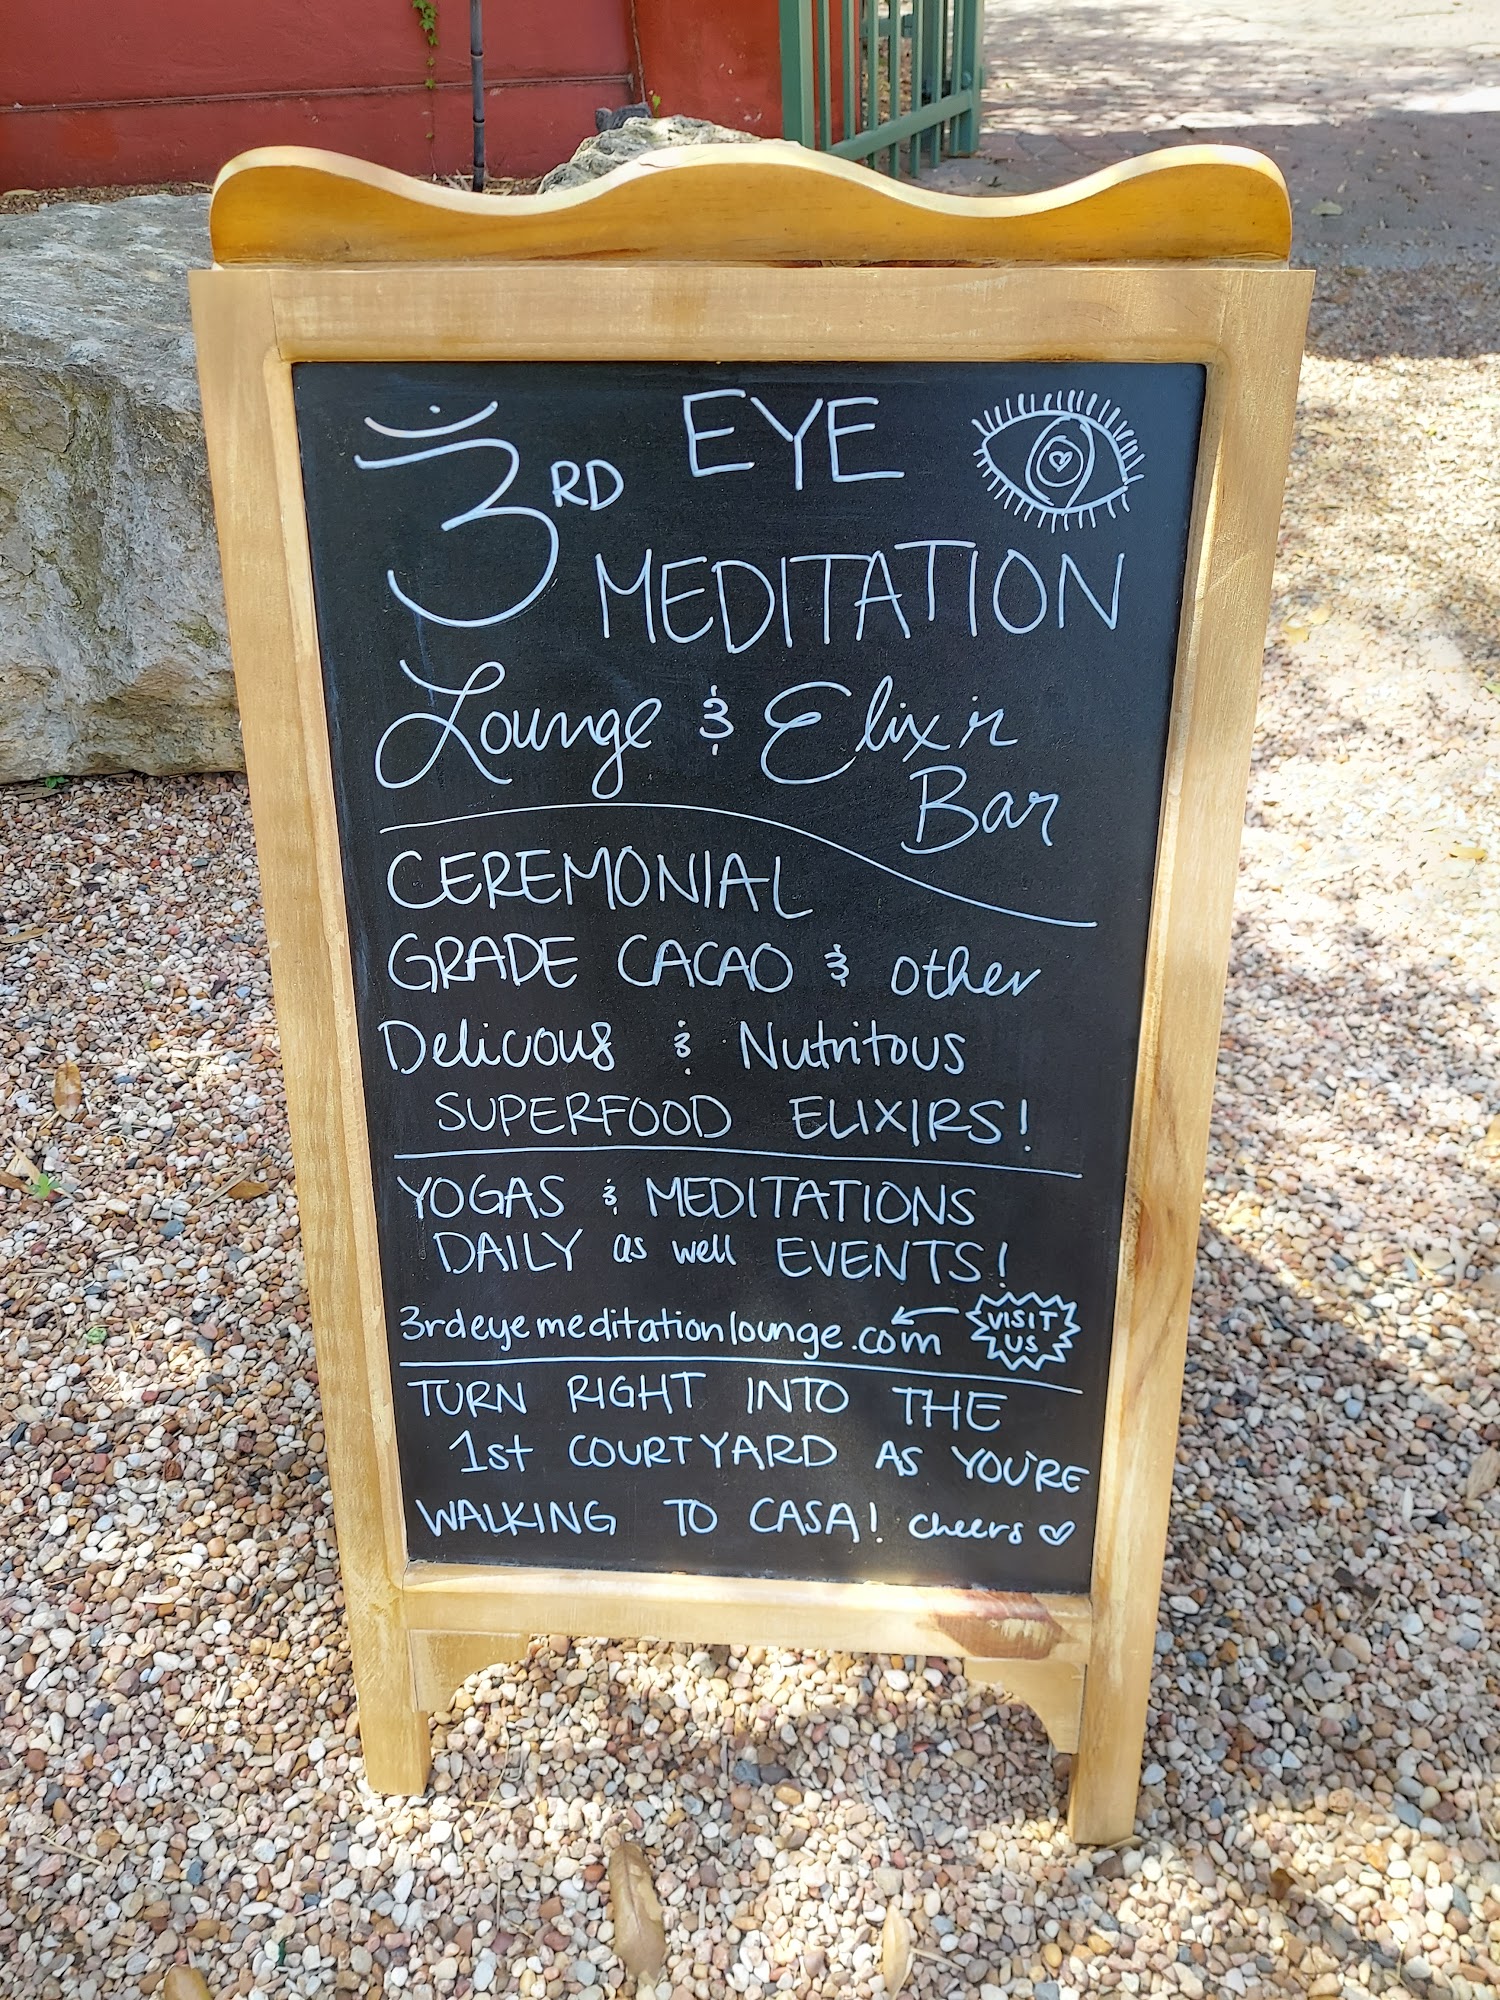 3RD EYE
MEDITATION
Lounge & Elixir
Bar
CEREMONIAL
GRADE CACAO & other
Delicious & Nutritous
SUPERFOOD ELIXIRS!
YOGAS & MEDITATIONS
DAILY as well EVENTS!
3rdeyemeditationlounge.com
VISIT
US
TURN RIGHT INTO THE
1st COURTYARD AS YOU'RE
WALKING TO CASA! cheers